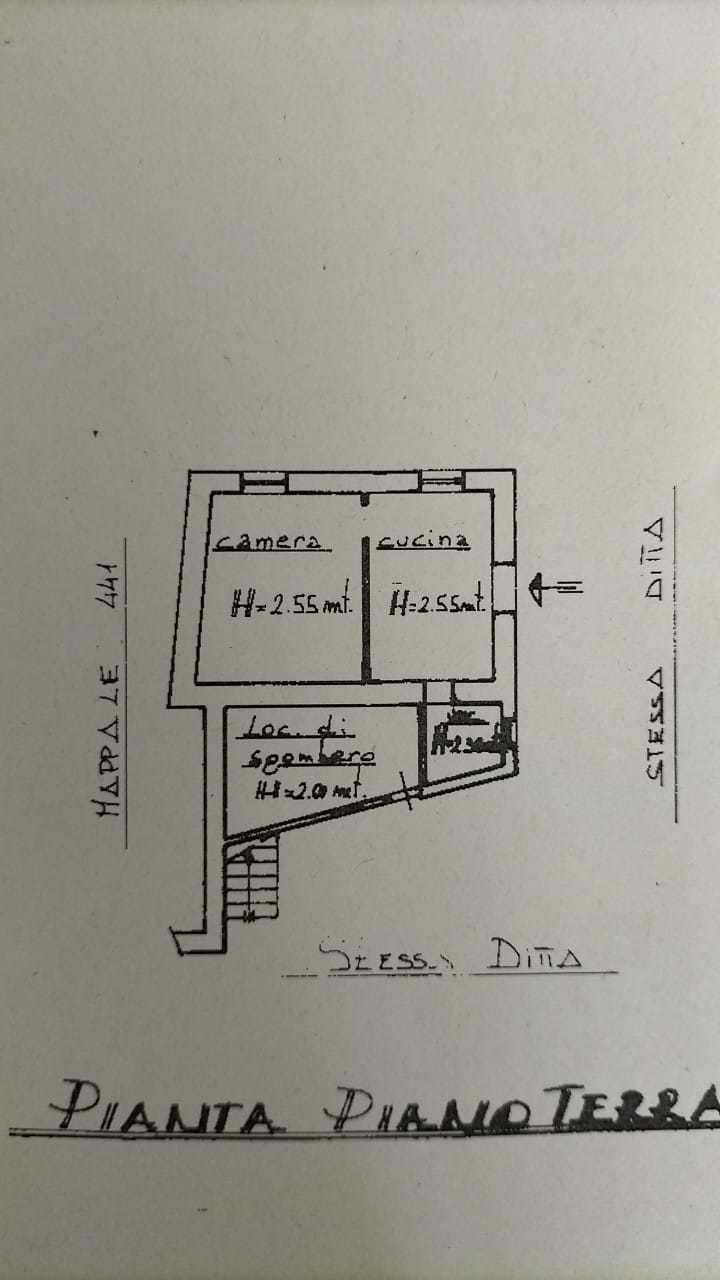 camera
cucina
H=2.55 mt.
H=2.55 mt.
MAPPALE 441
STESSA DITTA
Loc. di
sgombero
H=2.00 mt.
STESSA DITTA
PIANTA PIANO TERRA